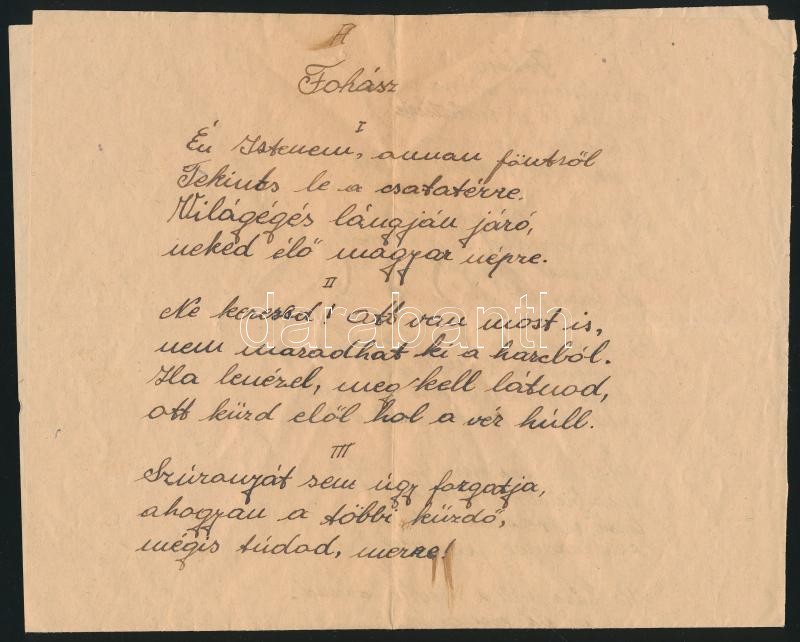 A
Fohász
I
Én Istenem, annan föntről
Tekints le a csatatérre.
Világégés lángján járó,
neked élő magyar népre.
II
Ne keresd! Ott van most is,
nem maradhat ki a harcból.
Ha lenézel, meg kell látnod,
ott küzd elől hol a vér húll.
III
Szúronyát sem úgy forgatja,
ahogyan a többi küzdő,
mégis túdod, merre!
darabanth